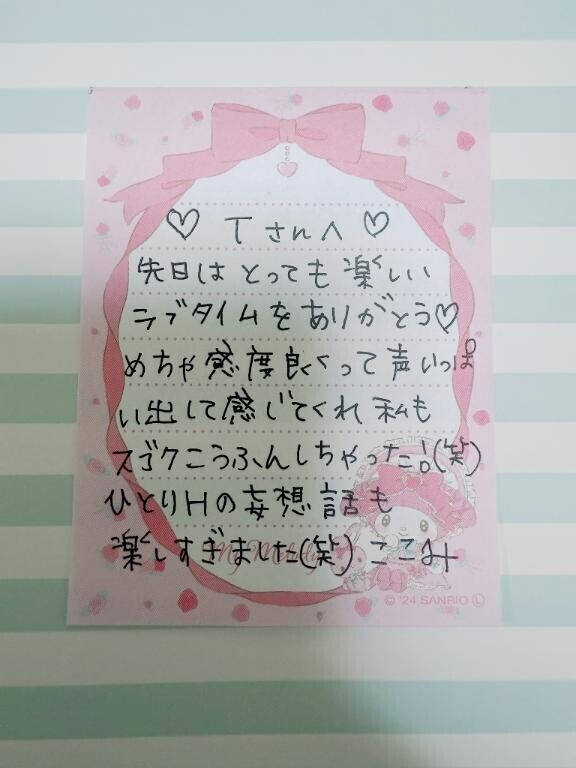 ♡ Tさんへ ♡
先日はとっても楽しい
ラブタイムをありがとう♡
めちゃ感度良くって声いっぱ
い出して感じてくれ私も
スゴクこうふんしちゃった!(笑)
ひとりHの妄想話も
楽しすぎました(笑) ここみ
My Melody
© '24 SANRIO Ⓛ